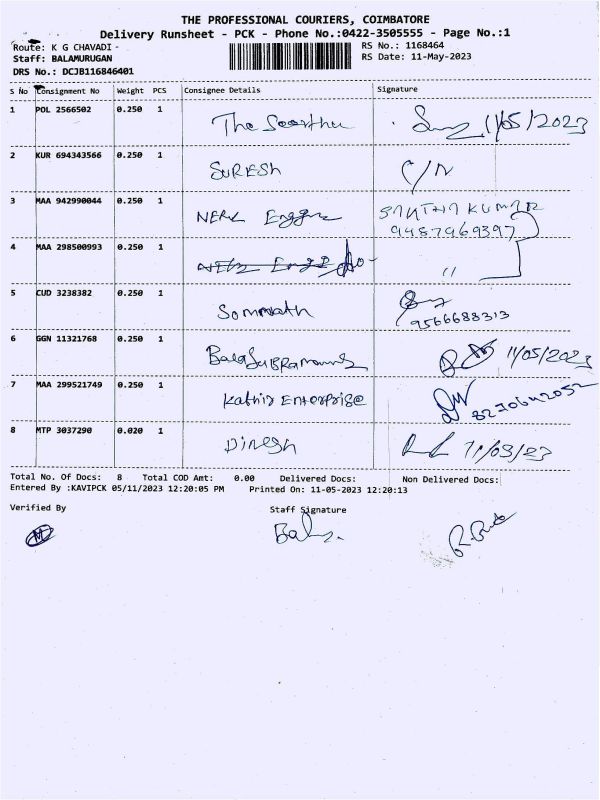 THE PROFESSIONAL COURIERS, COIMBATORE
Delivery Runsheet - PCK - Phone No.:0422-3505555 - Page No.:1
Route: K G CHAVADI -
RS No.: 1168464
Staff: BALAMURUGAN
RS Date: 11-May-2023
DRS No.: DCJB116846401
S No Consignment No Weight PCS Consignee Details Signature
1 POL 2566502 0.250 1 The 11/05/2023
2 KUR 694343566 0.250 1 SURESH C/N
3 MAA 942990044 0.250 1 SANTHA KUMAR
9487969397
4 MAA 298500993 0.250 1 "
5 CUD 3238382 0.250 1 Somnath
9566688313
6 GGN 11321768 0.250 1 11/05/2023
7 MAA 299521749 0.250 1 Kathir Enterprise
8270642052
8 MTP 3037290 0.020 1 Dinesh 11/05/23
Total No. Of Docs: 8 Total COD Amt: 0.00 Delivered Docs: Non Delivered Docs:
Entered By :KAVIPCK 05/11/2023 12:20:05 PM Printed On: 11-05-2023 12:20:13
Verified By Staff Signature